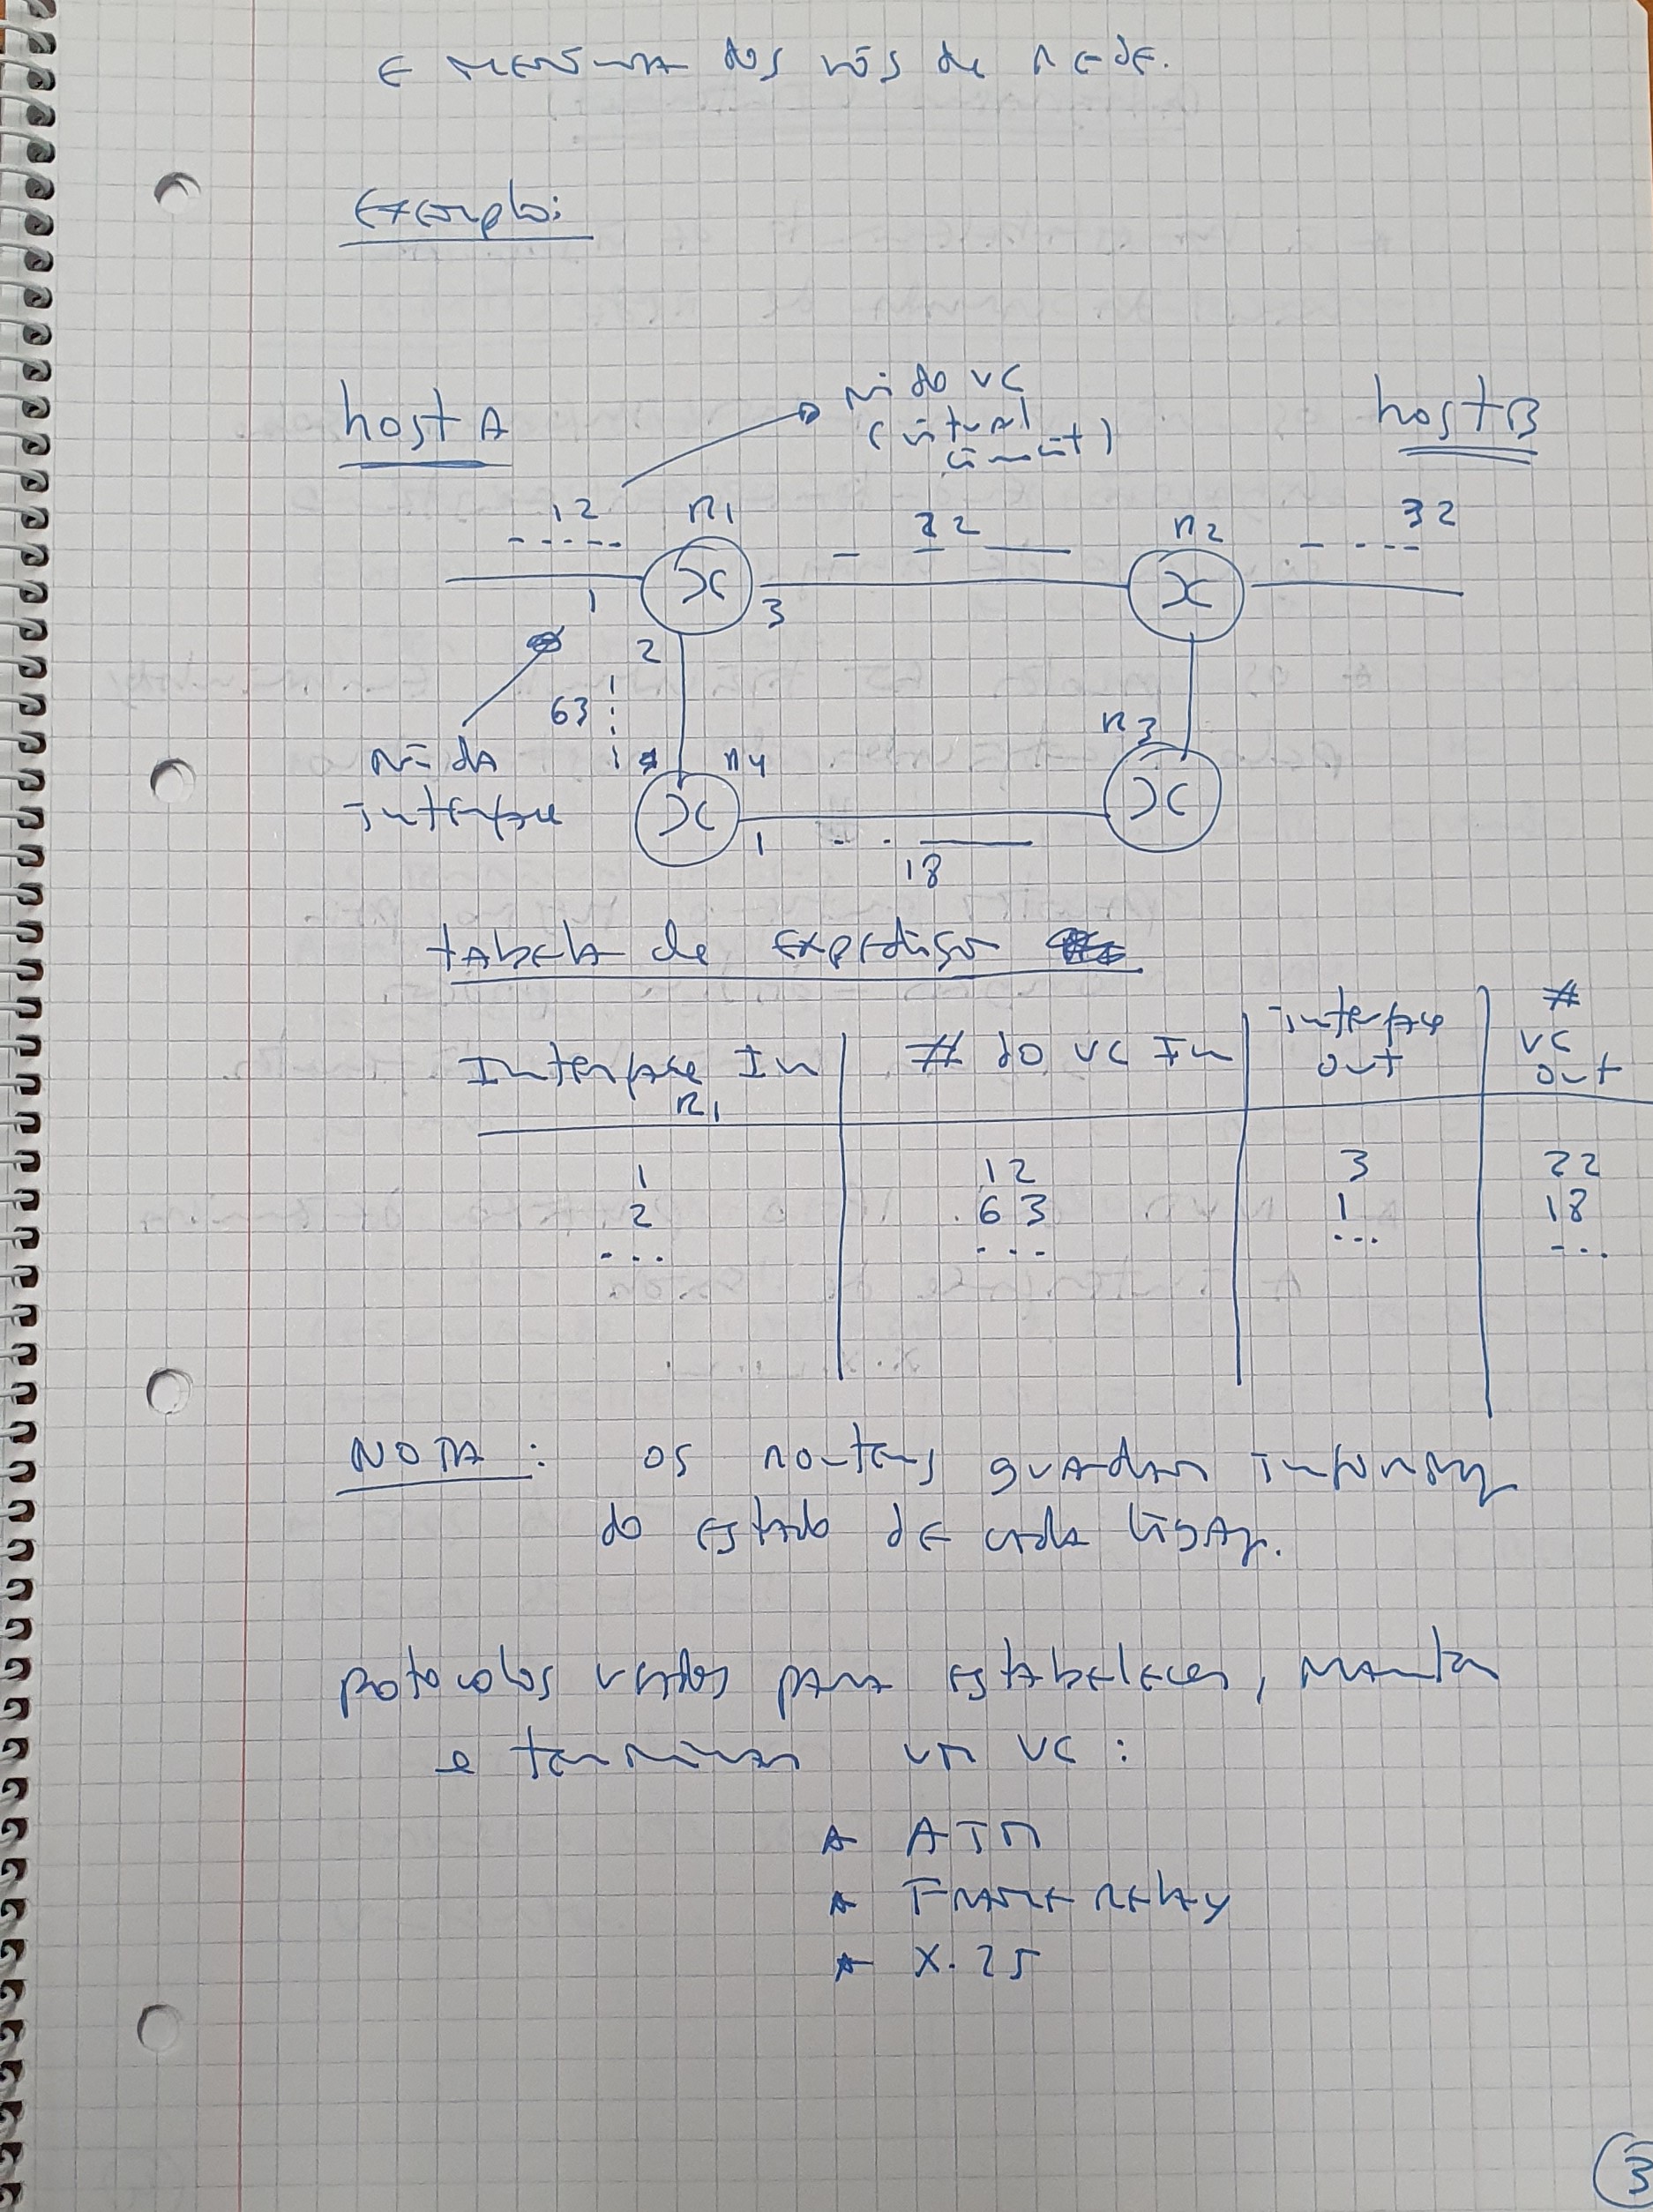 E MEMÓRIA dos nós de REDE.
Exemplo:
host A
Nº do VC
(virtual
circuit)
host B
12
R1
22
R2
32
1
3
2
63
Nº da
interface
R4
R3
1
18
tabela de expedição
Interface In
R1
# do VC In
interface
out
#
VC
out
1 12 3 22
2 63 1 18
... ... ... ...
NOTA: os routers guardam informaç
do estado de cada ligaç.
protocolos usados para estabelecer, manter
e terminar um VC:
* ATM
* Frame Relay
* X.25
3